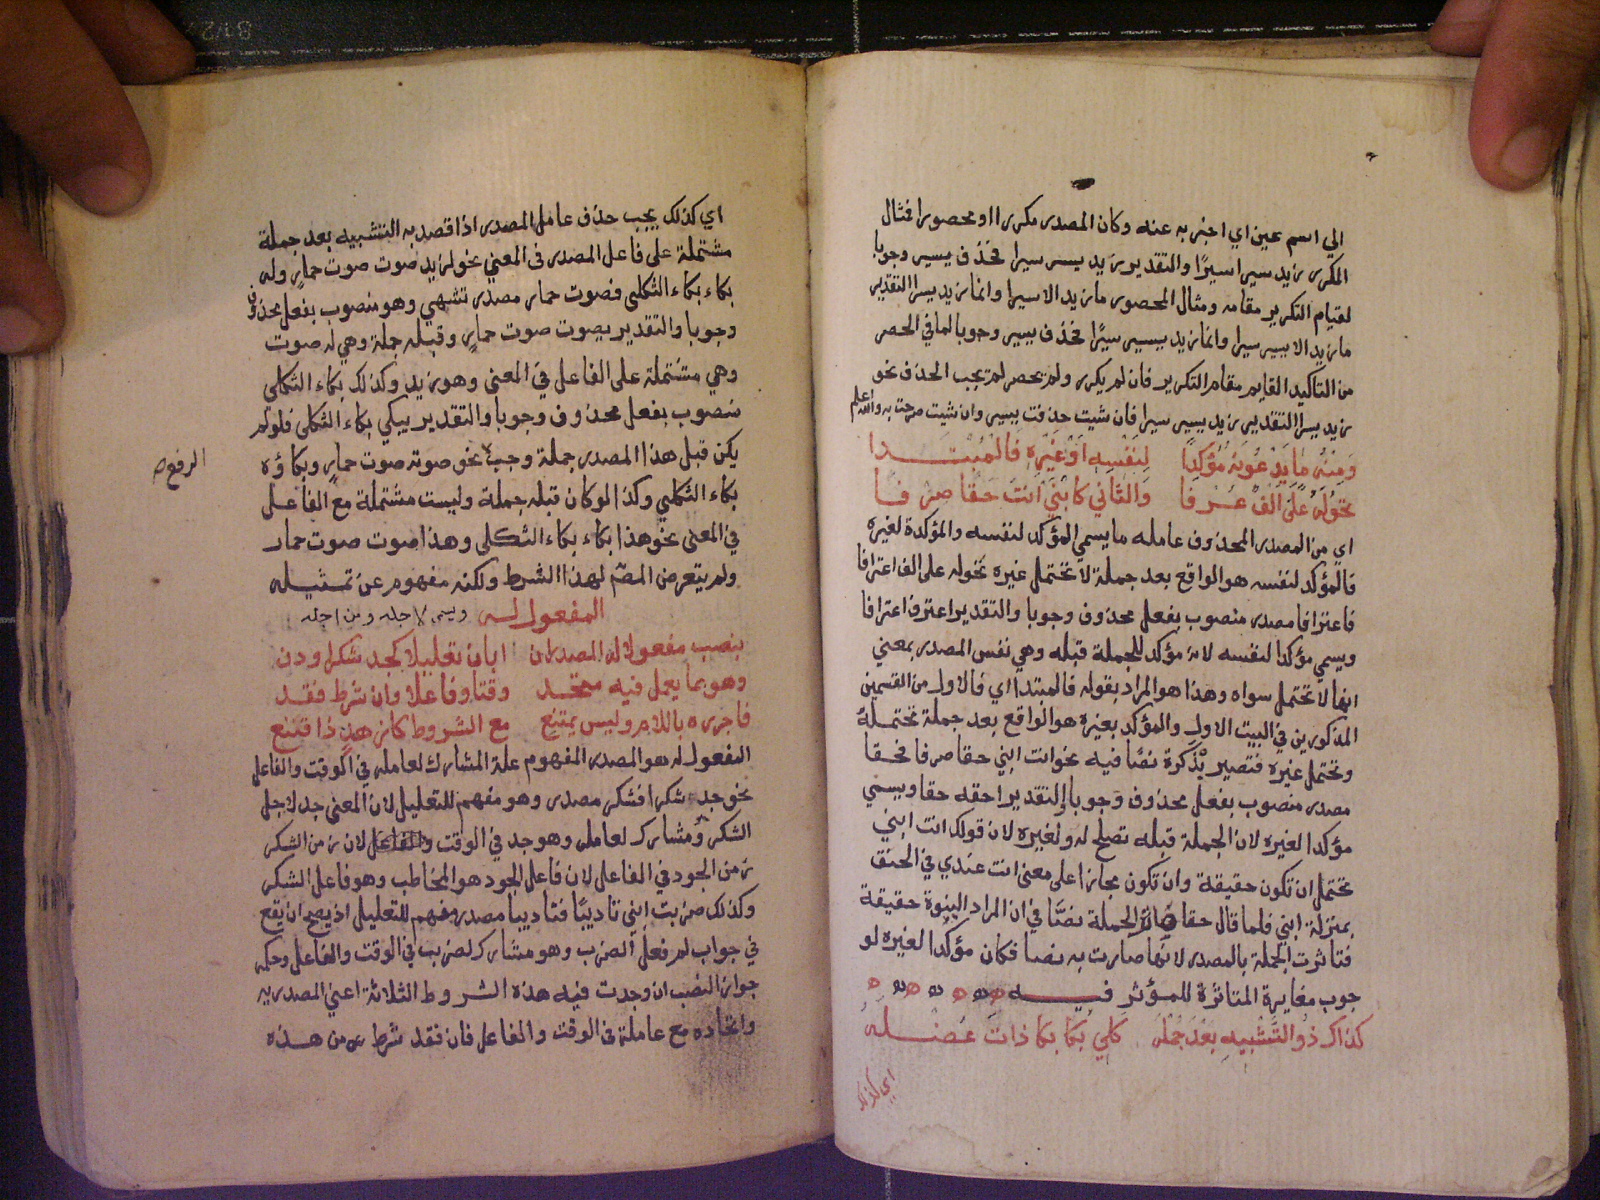 الي اسم عين اي اخبر به عنه وكان المصدر مكررا او محصورا فمثال
المكرر زيد سيرا سيرًا والتقدير زيد يسير سيرا فحذف يسير وجوبا
لقيام التكرير مقامه ومثال المحصور ما زيد الا سيرا وانما زيد سيرا التقدير
ما زيد الا يسير سيرا وانما زيد يسير سيرًا فحذف يسير وجوبا لما في الحصر
من التاكيد القايم مقام التكرير فان لم يكرر ولم يحصر لم يجب الحذف نحو
زيد سيرا التقدير زيد يسير سيرا فان شيت حذفت يسير وان شيت صرحت به والله اعلم
وَمِنْهُ مَا يَدْعُونَهُ مُؤَكِّدَا لِنَفْسِهِ اَوْ غَيْرِهِ فَالْمُبْتَدا
نحوُ لَهُ عَلَىَّ اَلْفٌ عُرْفَا وَالثَّانِي كَابْنِي اَنْتَ حَقًّا صِرْفَا
اي من المصدر المحذوف عامله ما يسمي المؤكد لنفسه والمؤكدة لغيره
فالمؤكد لنفسه هو الواقع بعد جملة لا تحتمل غيره نحو له علي الف اعترافا
فاعترافا مصدر منصوب بفعل محذوف وجوبا والتقدير اعترف اعترافا
ويسمي مؤكدا لنفسه لانه مؤكد للجملة قبله وهي نفس المصدر بمعني
انها لا تحتمل سواه وهذا هو المراد بقوله فالمبتدا اي فالاول من القسمين
المذكورين في البيت الاول والمؤكد بغيره هو الواقع بعد جملة تحتمله
وتحتمل غيره فتصير بذكره نصًا فيه نحو انت ابني حقا صرفا فحقا
مصدر منصوب بفعل محذوف وجوبا والتقدير احقه حقا ويسمي
مؤكدا لغيره لان الجملة قبله تصلح له ولغيره لان قولك انت ابني
تحتمل ان تكون حقيقة وان تكون مجازا علي معني انت عندي في الحنو
بمنزلة ابني فلما قال حقا صارت الجملة نصًا في ان المراد البنوة حقيقة
فتاثرت الجملة بالمصدر لانها صارت به نصا فكان مؤكدا لغيره لو
جوب مغايرة المتاثرة للمؤثر فيه
كذاك ذُو التَّشْبِيهِ بَعْدَ جُمْلَه كَلِي بُكًا بكا ذات عُضْله
اي كذلك
اي كذلك يجب حذف عامل المصدر اذا قصد به التشبيه بعد جملة
مشتملة علي فاعل المصدر في المعني نحو لزيد صوت صوت حمارٍ وله
بكاء بكاء الثكلي فصوت حمار مصدر تشبهي وهو منصوب بفعل محذوف
وجوبا والتقدير يصوت صوت حمارٍ وقبله جملة وهي له صوت
وهي مشتملة علي الفاعل في المعني وهو زيد وكذلك بكاء الثكلي
منصوب بفعل محذوف وجوبا والتقدير يبكي بكاء الثكلي فلو لم
يكن قبل هذا المصدر جملة وجب نحو صوته صوت حمارٍ وبكاؤه
الرفع صح
بكاء الثكلي وكذا لو كان قبله جملة وليست مشتملة مع الفاعل
في المعني نحو هذا بكاء بكاء الثكلي وهذا صوت صوت حمار
ولم يتعرض المصّ لهذا الشرط ولكنه مفهوم عن تمثيله
المفعول له ويسمي لاجله ومن اجله
ينصب مفعولا له المصدر ان ابان تعليلا كجد شكرا ودن
وهو بما يعمل فيه متحد وقتا وفاعلا وان شرط فقد
فاجرره باللام وليس يمتنع مع الشروط كلزهدٍ ذا قنع
المفعول له هو المصدر المفهم علة المشارك لعامله في الوقت والفاعل
نحو جد شكرا فشكر مصدر وهو مفهم للتعليل لان المعني جد لاجل
الشكر ومشارك لعامله وهو جد في الوقت والفاعل لان زمن الشكر
زمن الجود في الفاعل لان فاعل الجود هو المخاطب وهو فاعل الشكر
وكذلك ضربت ابني تاديبًا فتاديبا مصدر مفهم للتعليل اذ يصح ان يقع
في جواب لم فعل الضرب وهو مشارك لضربت في الوقت والفاعل وحكمه
جواز النصب ان وجدت فيه هذه الشروط الثلاثة اعني المصدريه
واتحاده مع عامله في الوقت والفاعل فان فقد شرط من هذه